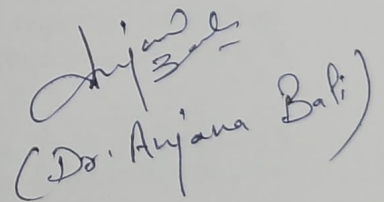 Anjana
Bali
(Dr. Anjana Bali)